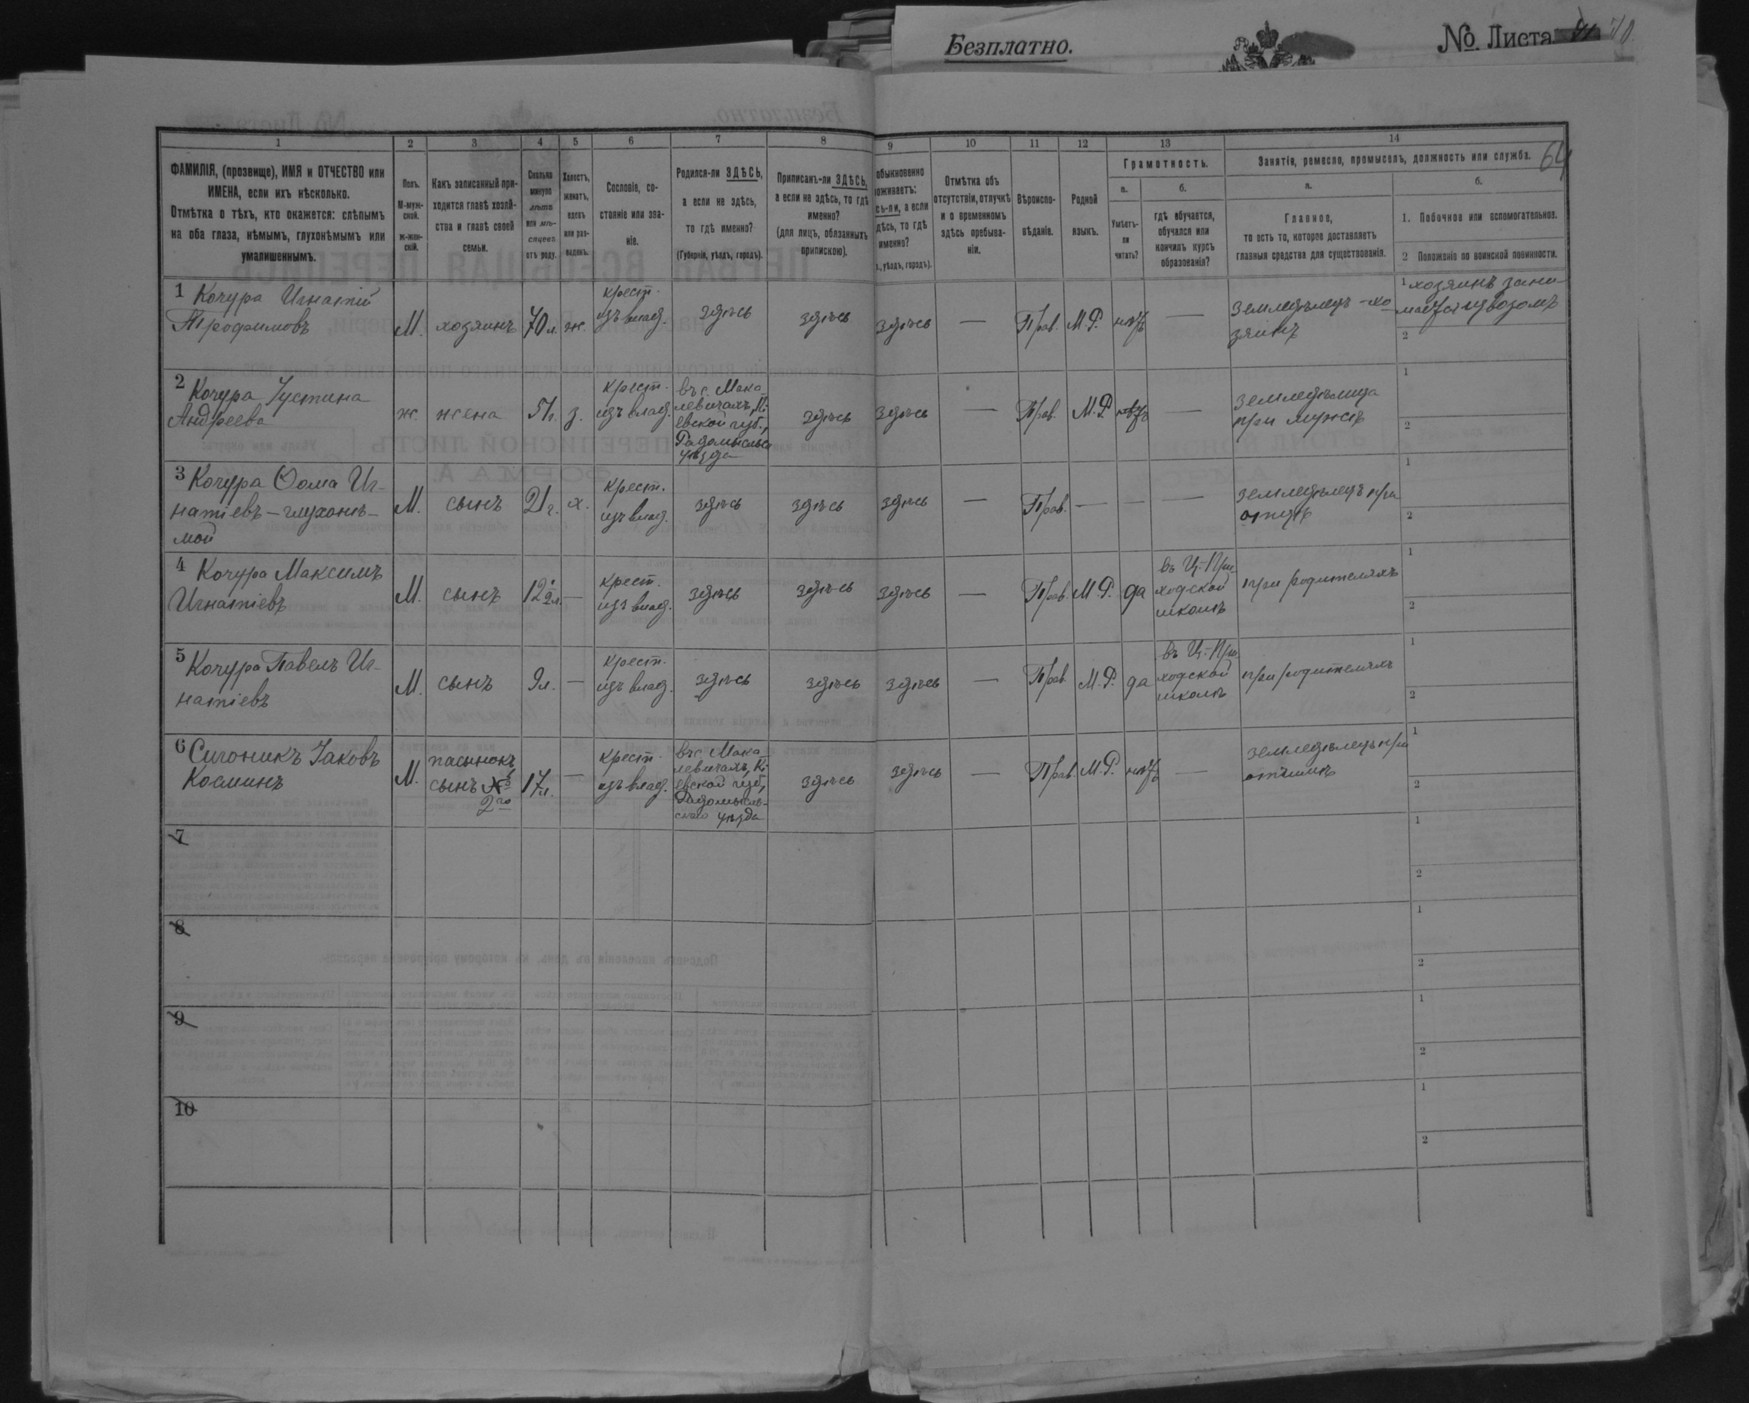 Безплатно.
№ Листа
64
1
2
3
4
5
6
7
8
9
10
11
12
13
14
ФАМИЛІЯ, (прозвище), ИМЯ и ОТЧЕСТВО или
ИМЕНА, если ихъ нѣсколько.
Отмѣтка о тѣхъ, кто окажется: слѣпымъ
на оба глаза, нѣмымъ, глухонѣмымъ или
умалишеннымъ.
Полъ.
М-муж-
ской.
ж-жен-
скій.
Какъ записанный при-
ходится главѣ хозяй-
ства и главѣ своей
семьи.
Сколько
минуло
лѣтъ
или мѣ-
сяцевъ
отъ роду.
Холостъ,
женатъ,
вдовъ
или раз-
веденъ.
Сословіе, со-
стояніе или зва-
ніе.
Родился-ли ЗДѢСЬ,
а если не здѣсь,
то гдѣ именно?
(Губернія, уѣздъ, городъ).
Приписанъ-ли ЗДѢСЬ,
а если не здѣсь, то гдѣ
именно?
(для лицъ, обязанныхъ
припискою).
обыкновенно
оживаетъ:
сь-ли, а если
дѣсь, то гдѣ
именно?
., уѣздъ, городъ).
Отмѣтка объ
отсутствіи, отлучкѣ
и о временномъ
здѣсь пребыва-
ніи.
Вѣроиспо-
вѣданіе.
Родной
языкъ.
Грамотность.
а.
Умѣетъ-
ли
читать?
б.
гдѣ обучается,
обучался или
кончилъ курсъ
образованія?
Занятіе, ремесло, промыселъ, должность или служба.
а.
Главное,
то есть то, которое доставляетъ
главныя средства для существованія.
б.
1. Побочное или вспомогательное.
2 Положеніе по воинской повинности.
1 Кочура Игнатій
Трофимовъ
М. хозяинъ 70 л. ж.
крест.
изъ влад.
здѣсь здѣсь здѣсь — Прав. М.Р. нѣтъ —
земледѣлецъ-хо-
зяинъ
1 хозяинъ зани-
2
2 Кочура Устина
Андреева
ж. жена 51 г. з.
крест.
изъ влад.
въ с. Мака
левичахъ, Кі-
евской губ.,
Радомысльск
уѣзда
здѣсь здѣсь — Прав. М.Р. нѣтъ —
земледѣлица
при мужѣ
1
2
3 Кочура Ѳома Иг-
натіевъ — глухонѣ-
мой
М. сынъ 21 г. х.
крест.
изъ влад.
здѣсь здѣсь здѣсь — Прав. — — —
земледѣлецъ при
отцѣ
1
2
4 Кочура Максимъ
Игнатіевъ
М. сынъ 12 л. —
крест.
изъ влад.
здѣсь здѣсь здѣсь — Прав. М.Р. да
въ Ц.-При
ходской
школѣ
при родителяхъ
1
2
5 Кочура Павелъ Иг-
натіевъ
М. сынъ 9 л. —
крест.
изъ влад.
здѣсь здѣсь здѣсь — Прав. М.Р. да
въ Ц.-При
ходской
школѣ
при родителяхъ
1
2
6 Сигоникъ Іаковъ
Косминъ
М.
пасынокъ
сынъ №
2го
17 л. —
крест.
изъ влад.
въ с. Мака
левичахъ, Кі-
евской губ.,
Радомысль-
скаго уѣзда
здѣсь здѣсь — Прав. М.Р. нѣтъ —
земледѣлецъ при
отчимѣ
1
2
7
1
2
8
1
2
9
1
2
10
1
2